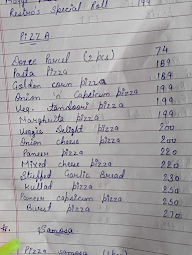 Restro's Special Roll 199
PIZZA
Doree Parcel (2 pcs) 74
Pasta Pizza 189
Golden corn pizza 189
Onion 'n' Capsicum pizza 199
Veg. tandoori pizza 199
Margherita pizza 199
Veggie Delight pizza 200
Onion cheese pizza 200
Paneer pizza 220
Mixed cheese pizza 220
Stuffed Garlic Bread 230
Kullad pizza 250
Paneer capsicum pizza 250
Burst pizza 270
Samosa
Pizza samosa